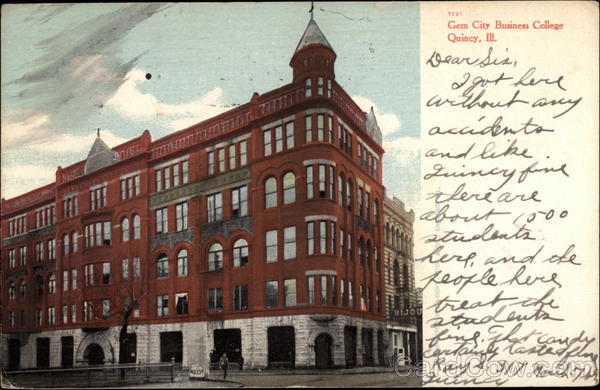 Gem City Business College
Quincy, Ill.
Dear Sis,
I got here
without any
accidents
and like
Quincy fine
there are
about 1500
students
here, and the
people here
treat the
students
fine. That candy
certainly tasted fine
Quincy
BIJOU
CardCow.com